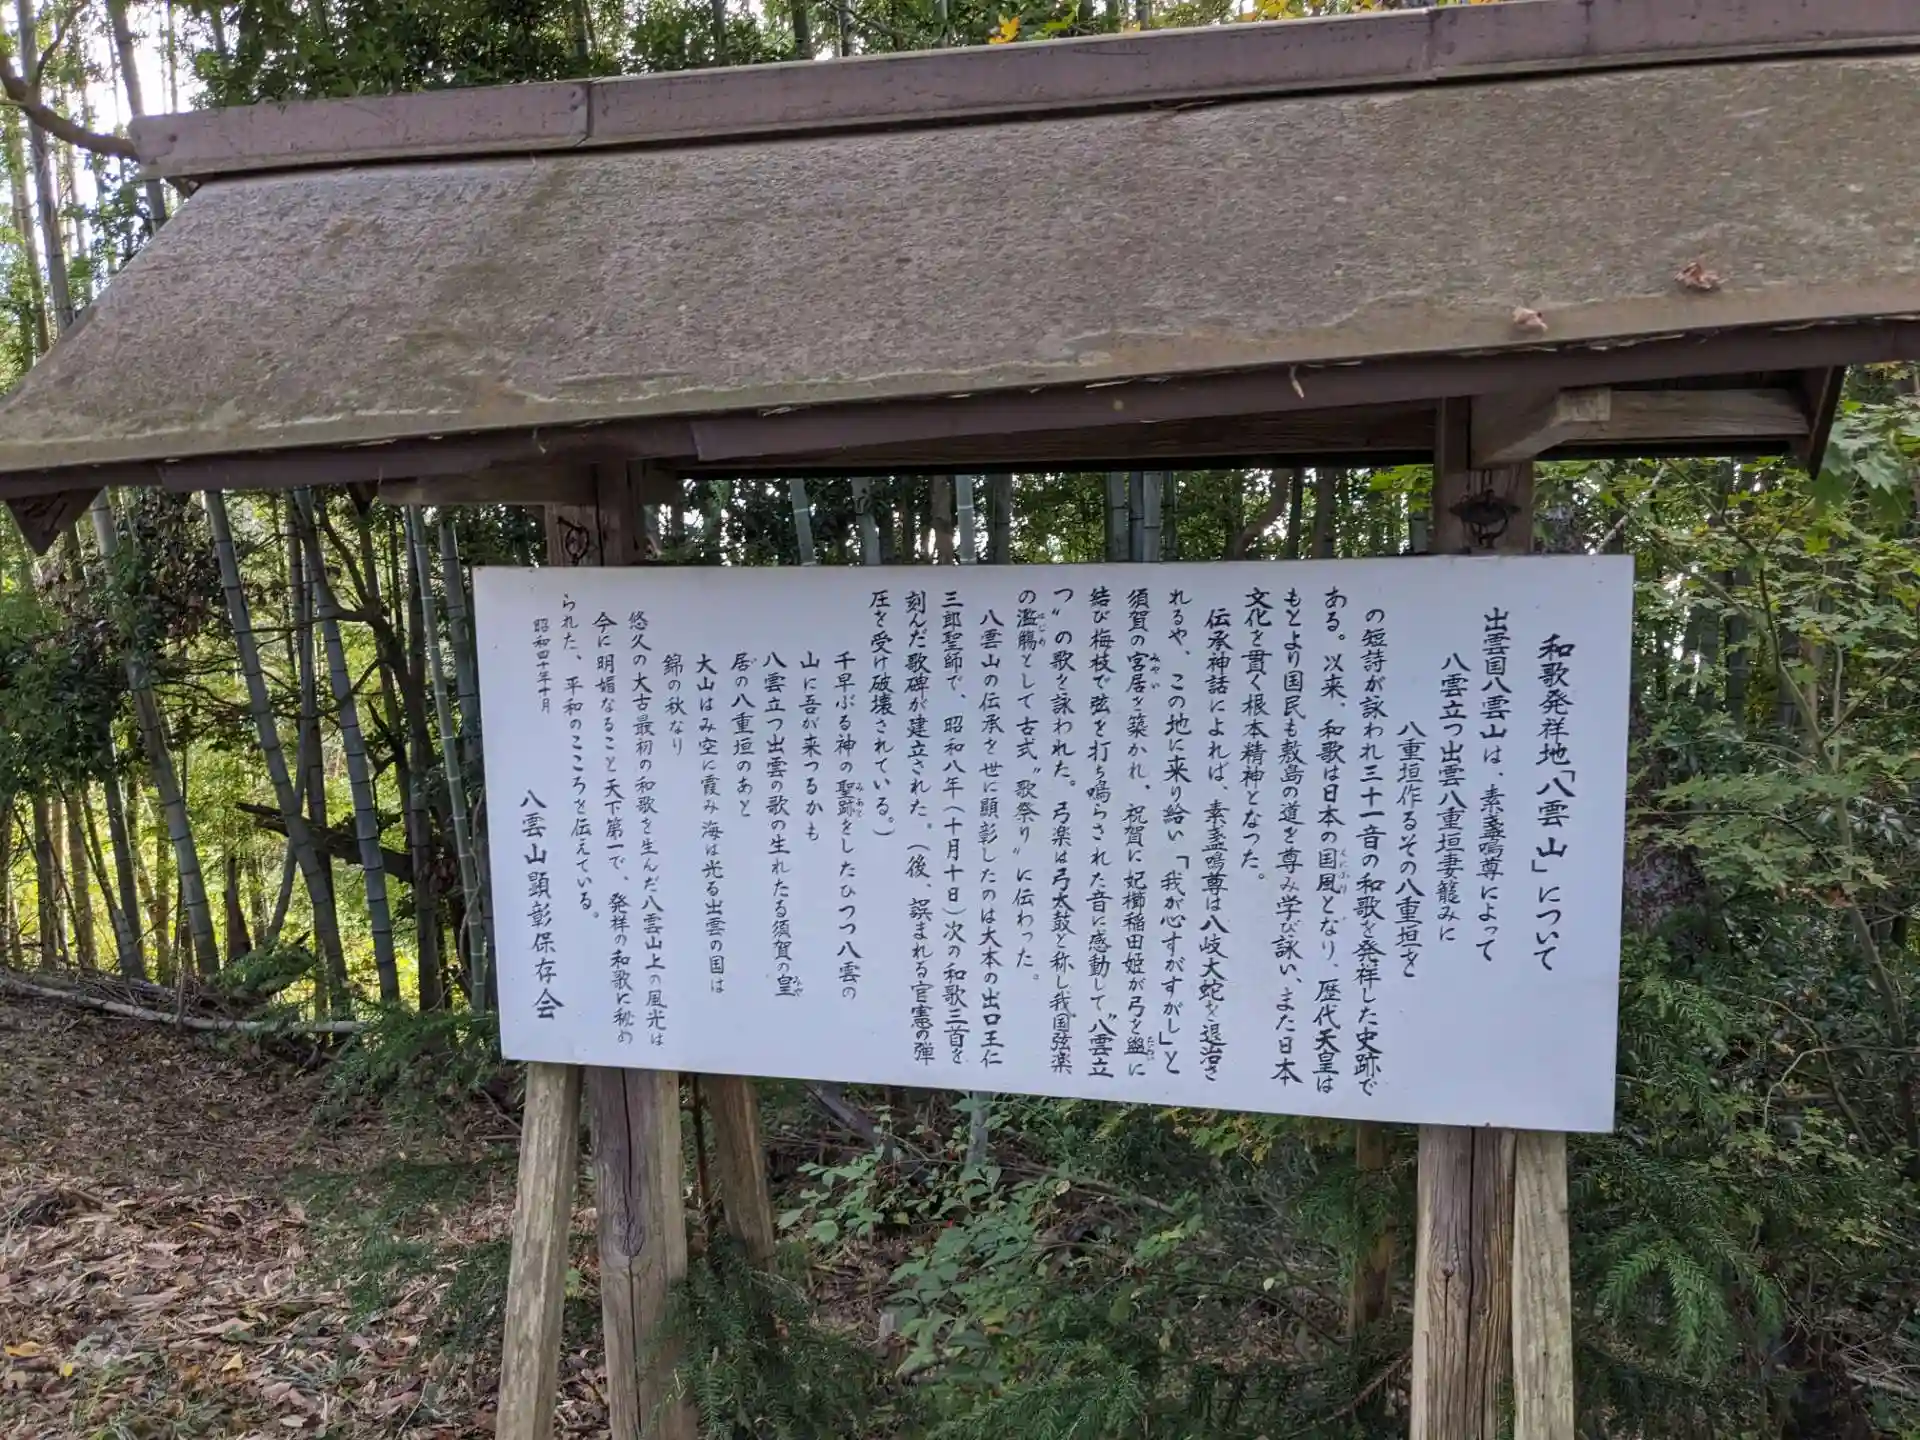 和歌発祥地「八雲山」について
出雲国八雲山は、素盞嗚尊によって
八雲立つ出雲八重垣妻籠みに
八重垣作るその八重垣を
の短詩が詠われ三十一音の和歌を発祥した史跡で
ある。以来、和歌は日本の国風となり、歴代天皇は
もとより国民も敷島の道を尊み学び詠い、また日本
文化を貫く根本精神となつた。
伝承神話によれば、素盞嗚尊は八岐大蛇を退治さ
れるや、この地に来り給い「我が心すがすがし」と
須賀の宮居を築かれ、祝賀に妃櫛稲田姫が弓を盥に
結び梅枝で弦を打ち鳴らされた音に感動して〝八雲立
つ〟の歌を詠われた。弓楽は弓太鼓と称し我国弦楽
の濫觴として古式〝歌祭り〟に伝わった。
八雲山の伝承を世に顕彰したのは大本の出口王仁
三郎聖師で、昭和八年(十月十日)次の和歌三首を
刻んだ歌碑が建立された。(後、誤まれる官憲の弾
圧を受け破壊されている。)
千早ぶる神の聖跡をしたひつつ八雲の
山に吾が来つるかも
八雲立つ出雲の歌の生れたる須賀の皇
居の八重垣のあと
大山はみ空に霞み海は光る出雲の国は
錦の秋なり
悠久の大古最初の和歌を生んだ八雲山上の風光は
今に明媚なること天下第一で、発祥の和歌に秘め
られた、平和のこころを伝えている。
昭和四十年十月
八雲山顕彰保存会